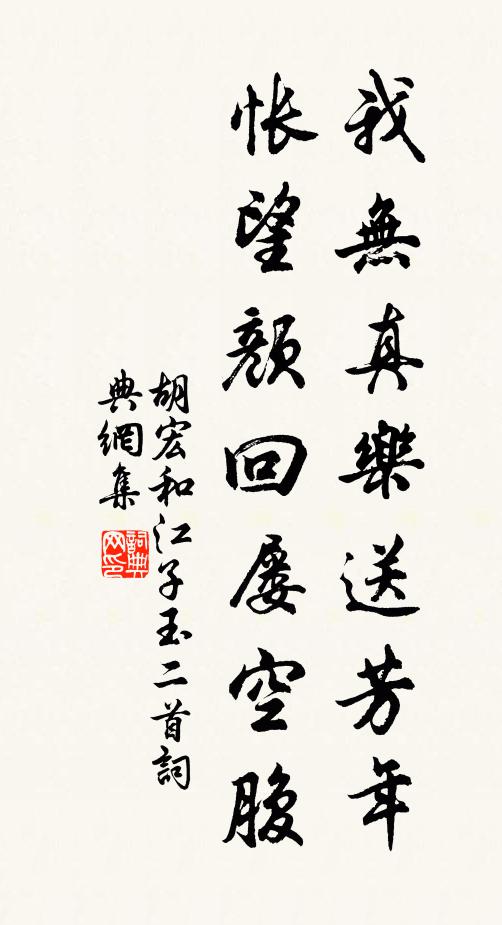 我無真樂送芳年
悵望顏回屡空腹
胡宏和江子玉二首詞
典網集
詞典
网印